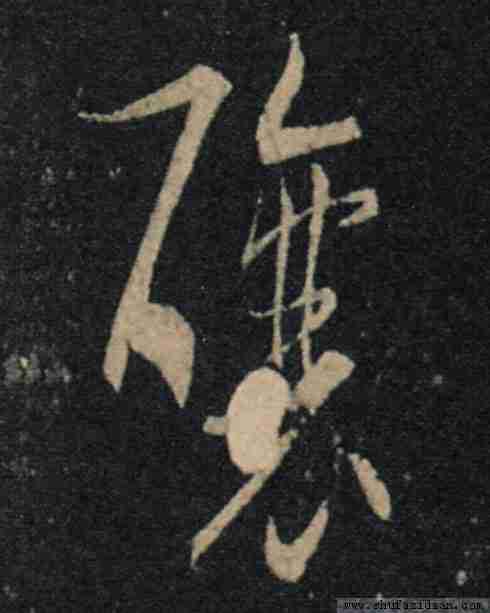 禳
www.shufazidian.com